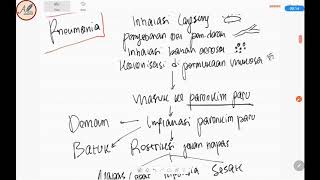 Pneumonia
Inhalasi langsung
penyebaran dari pem. darah
Inhalasi bahan aerosol
Kolonisasi di permukaan mukosa
Masuk ke parenkim paru
Demam
Inflamasi parenkim paru
Batuk
Restriksi jalan napas
Sesak